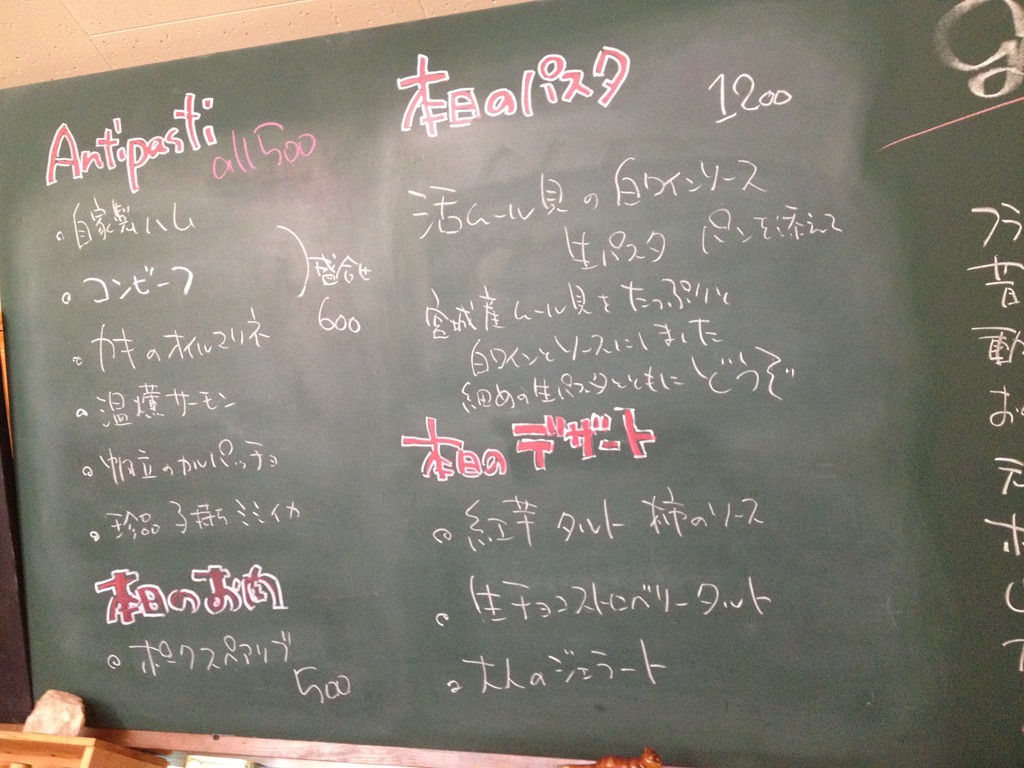 Antipasti all 500
・自家製ハム
・コンビーフ
盛合せ
600
・カキのオイルマリネ
・温燻サーモン
・帆立のカルパッチョ
・珍品 子持ちミミイカ
本日のお肉
・ポークスペアリブ
500
本日のパスタ 1200
活ムール貝の白ワインソース
生パスタ パンを添えて
宮城産ムール貝をたっぷりと
白ワインとソースにしました
細めの生パスタとともにどうぞ
本日のデザート
・紅芋タルト 柿のソース
・生チョコストロベリータルト
・大人のジェラート
フラ
昔
動
お